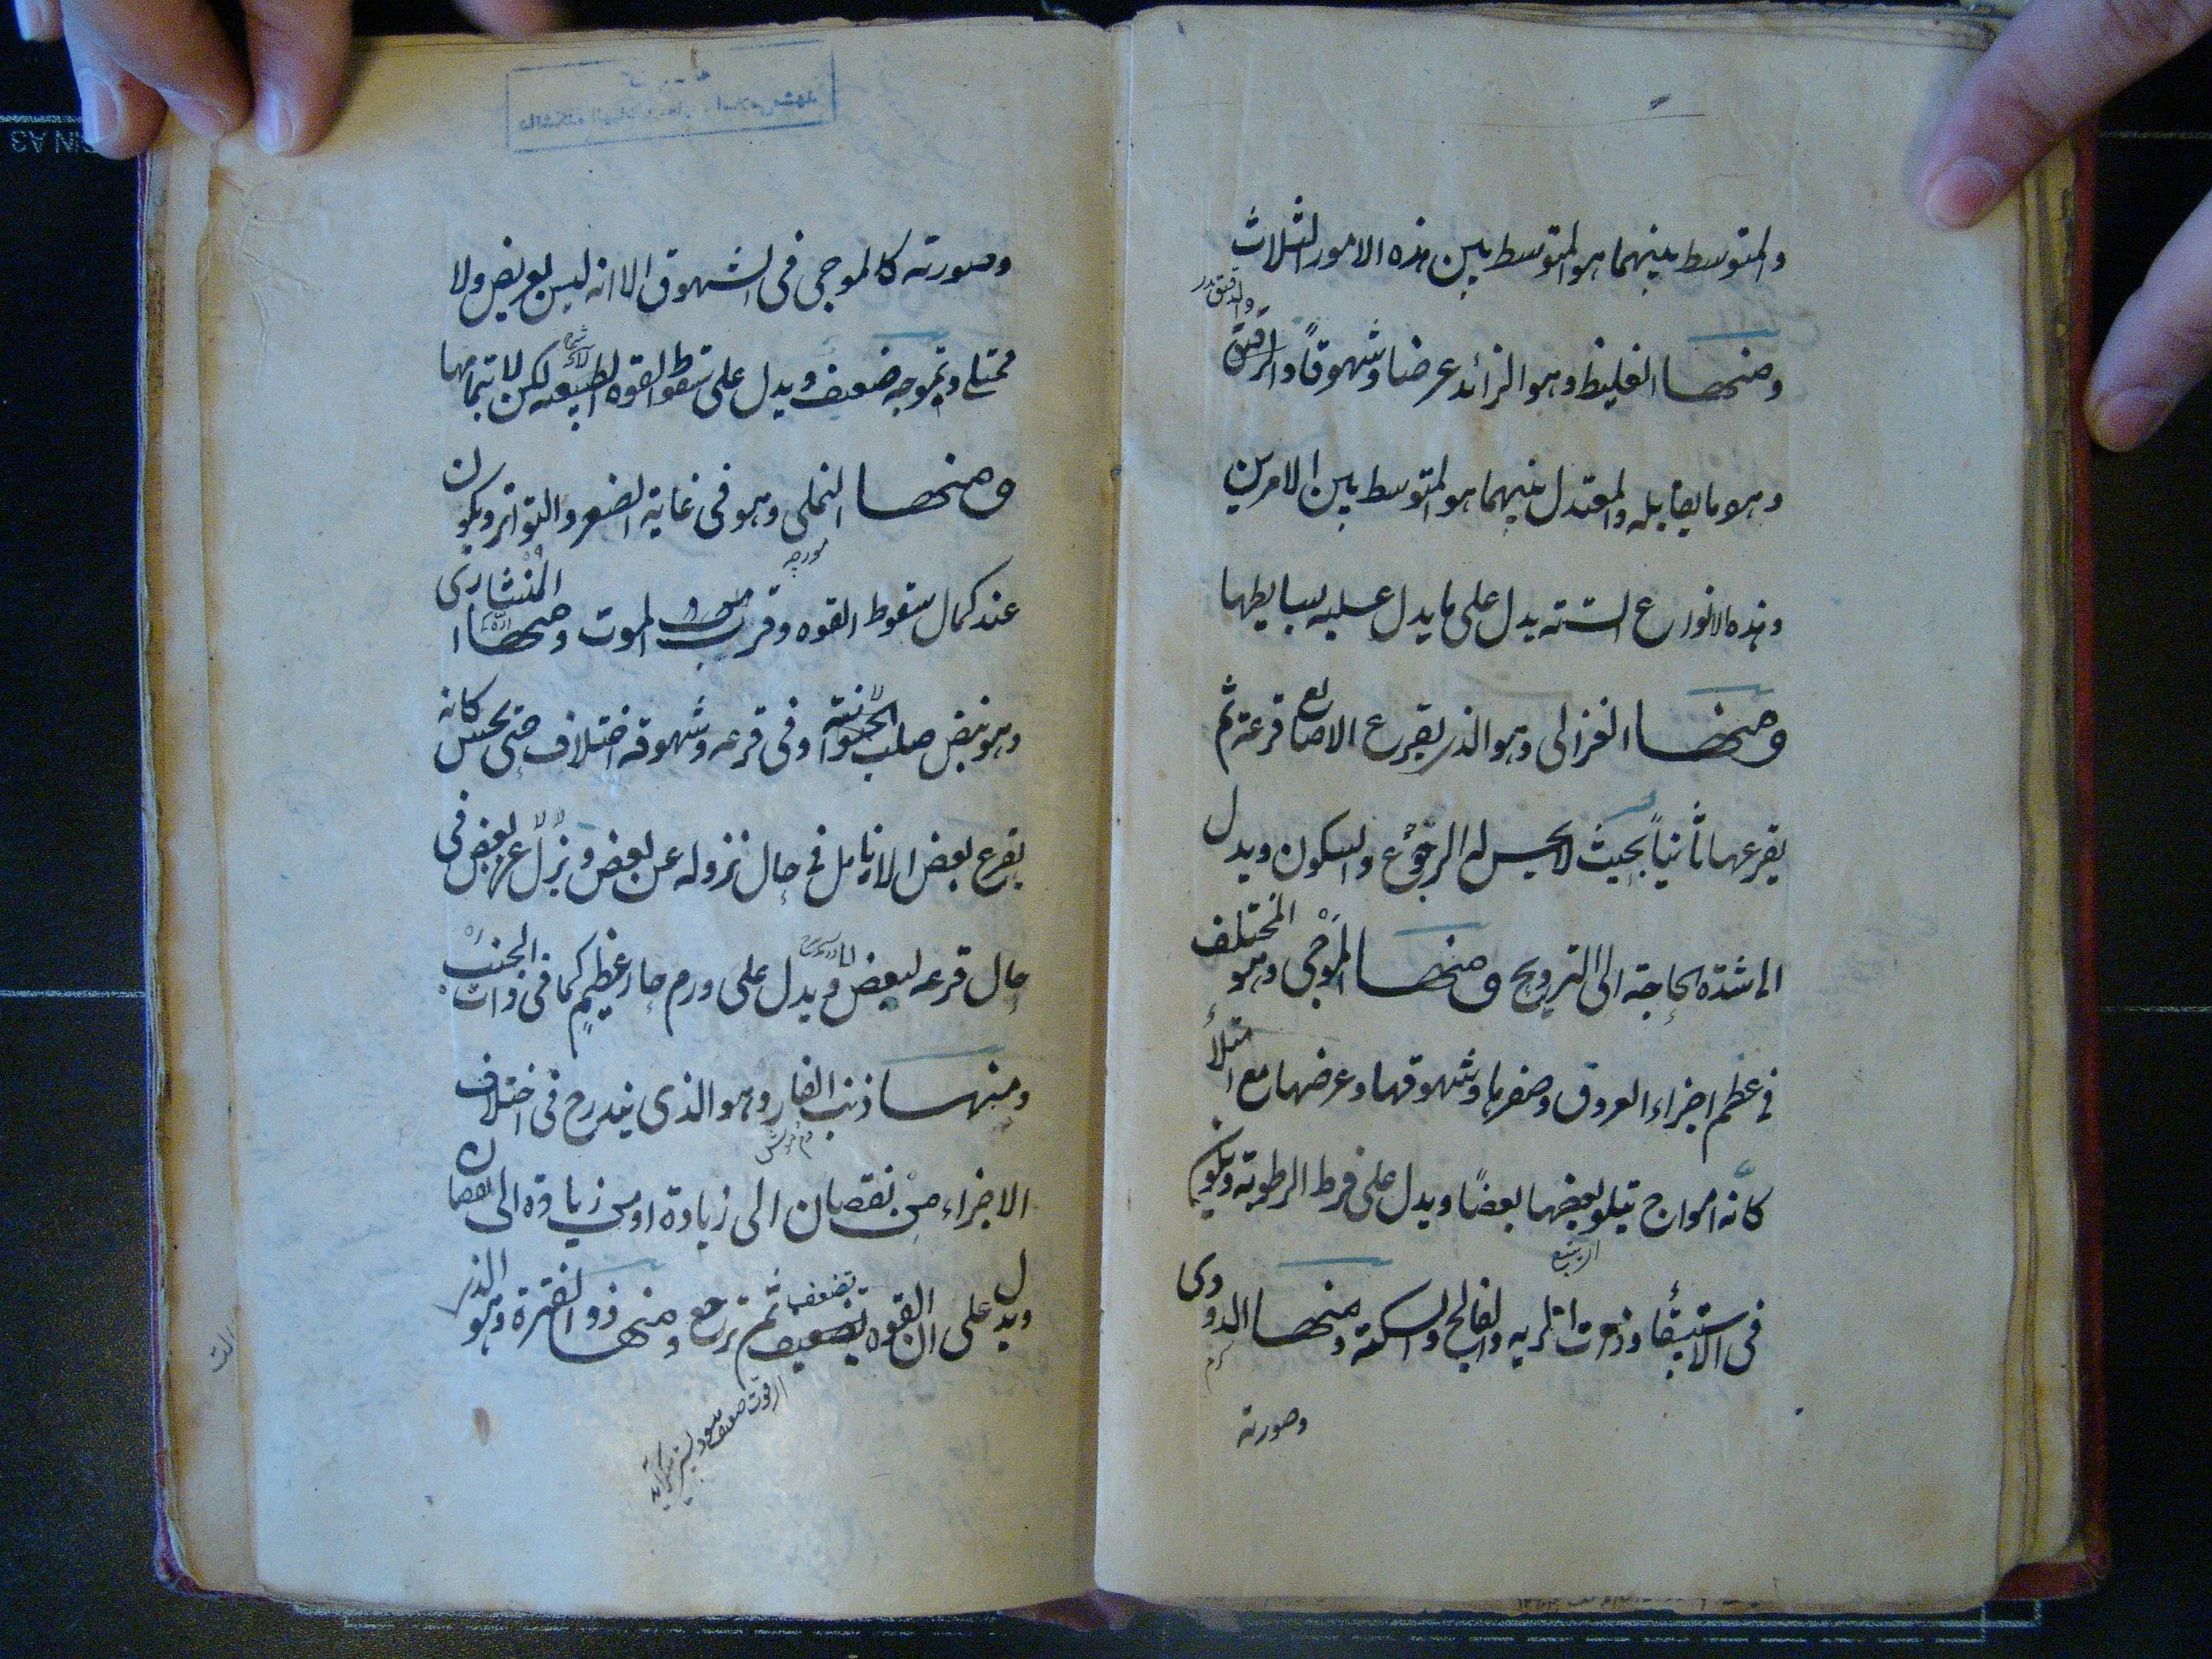 والمتوسط بينهما هو المتوسط بين هذه الامور الثلاث
ومنها الغليظ وهو الزائد عرضا وشهوقاً والرقيق
وهو ما يقابله والمعتدل بينهما هو المتوسط بين الامرين
وهذه الانواع الستة يدل على ما يدل عليه بسايطها
ومنها الغزالى وهو الذى يقرع الاصابع قرعة ثم
يقرعها ثانياً بحيث لا يحس له الرجوع والسكون ويدل
الى شدة الحاجة الى الترويح ومنها الموجى وهو المختلف
فى عظم اجزاء العروق وصغرها وشهوقها وعرضها مع امتلاء
كانه امواج يتلو بعضها بعضاً ويدل على فرط الرطوبة ويكون
فى الاستسقاء وذات الريه والفالج والسكتة ومنها الدودى
كرم
وصورته
وصورته كالموجى فى الشهوق الا انه ليس بعريض ولا
ممتلى وتموجه ضعيف ويدل على سقوط القوه الطبيعه لكن لا بتمامها
ومنها النملى وهو فى غاية الصغر والتواتر ويكون
مورچه
عند كمال سقوط القوه وقرب الموت ومنها المنشارى
اره
وهو نبض صلب متواتر وفى قرعه وشهوقه اختلاف حتى يحس كانه
يقرع بعض الانامل فى حال نزوله عن بعض وينزل عن بعض فى
حال قرعه لبعض ويدل على ورم حار عظيم كما فى ذات الجنب
ومنها ذنب الفار وهو الذى يتدرج فى اختلاف
دم موش
الاجزاء من نقصان الى زيادة او من زيادة الى نقصان
ويدل على ان القوه تضعف ثم ترجع ومنها ذو الفترة وهو الذى